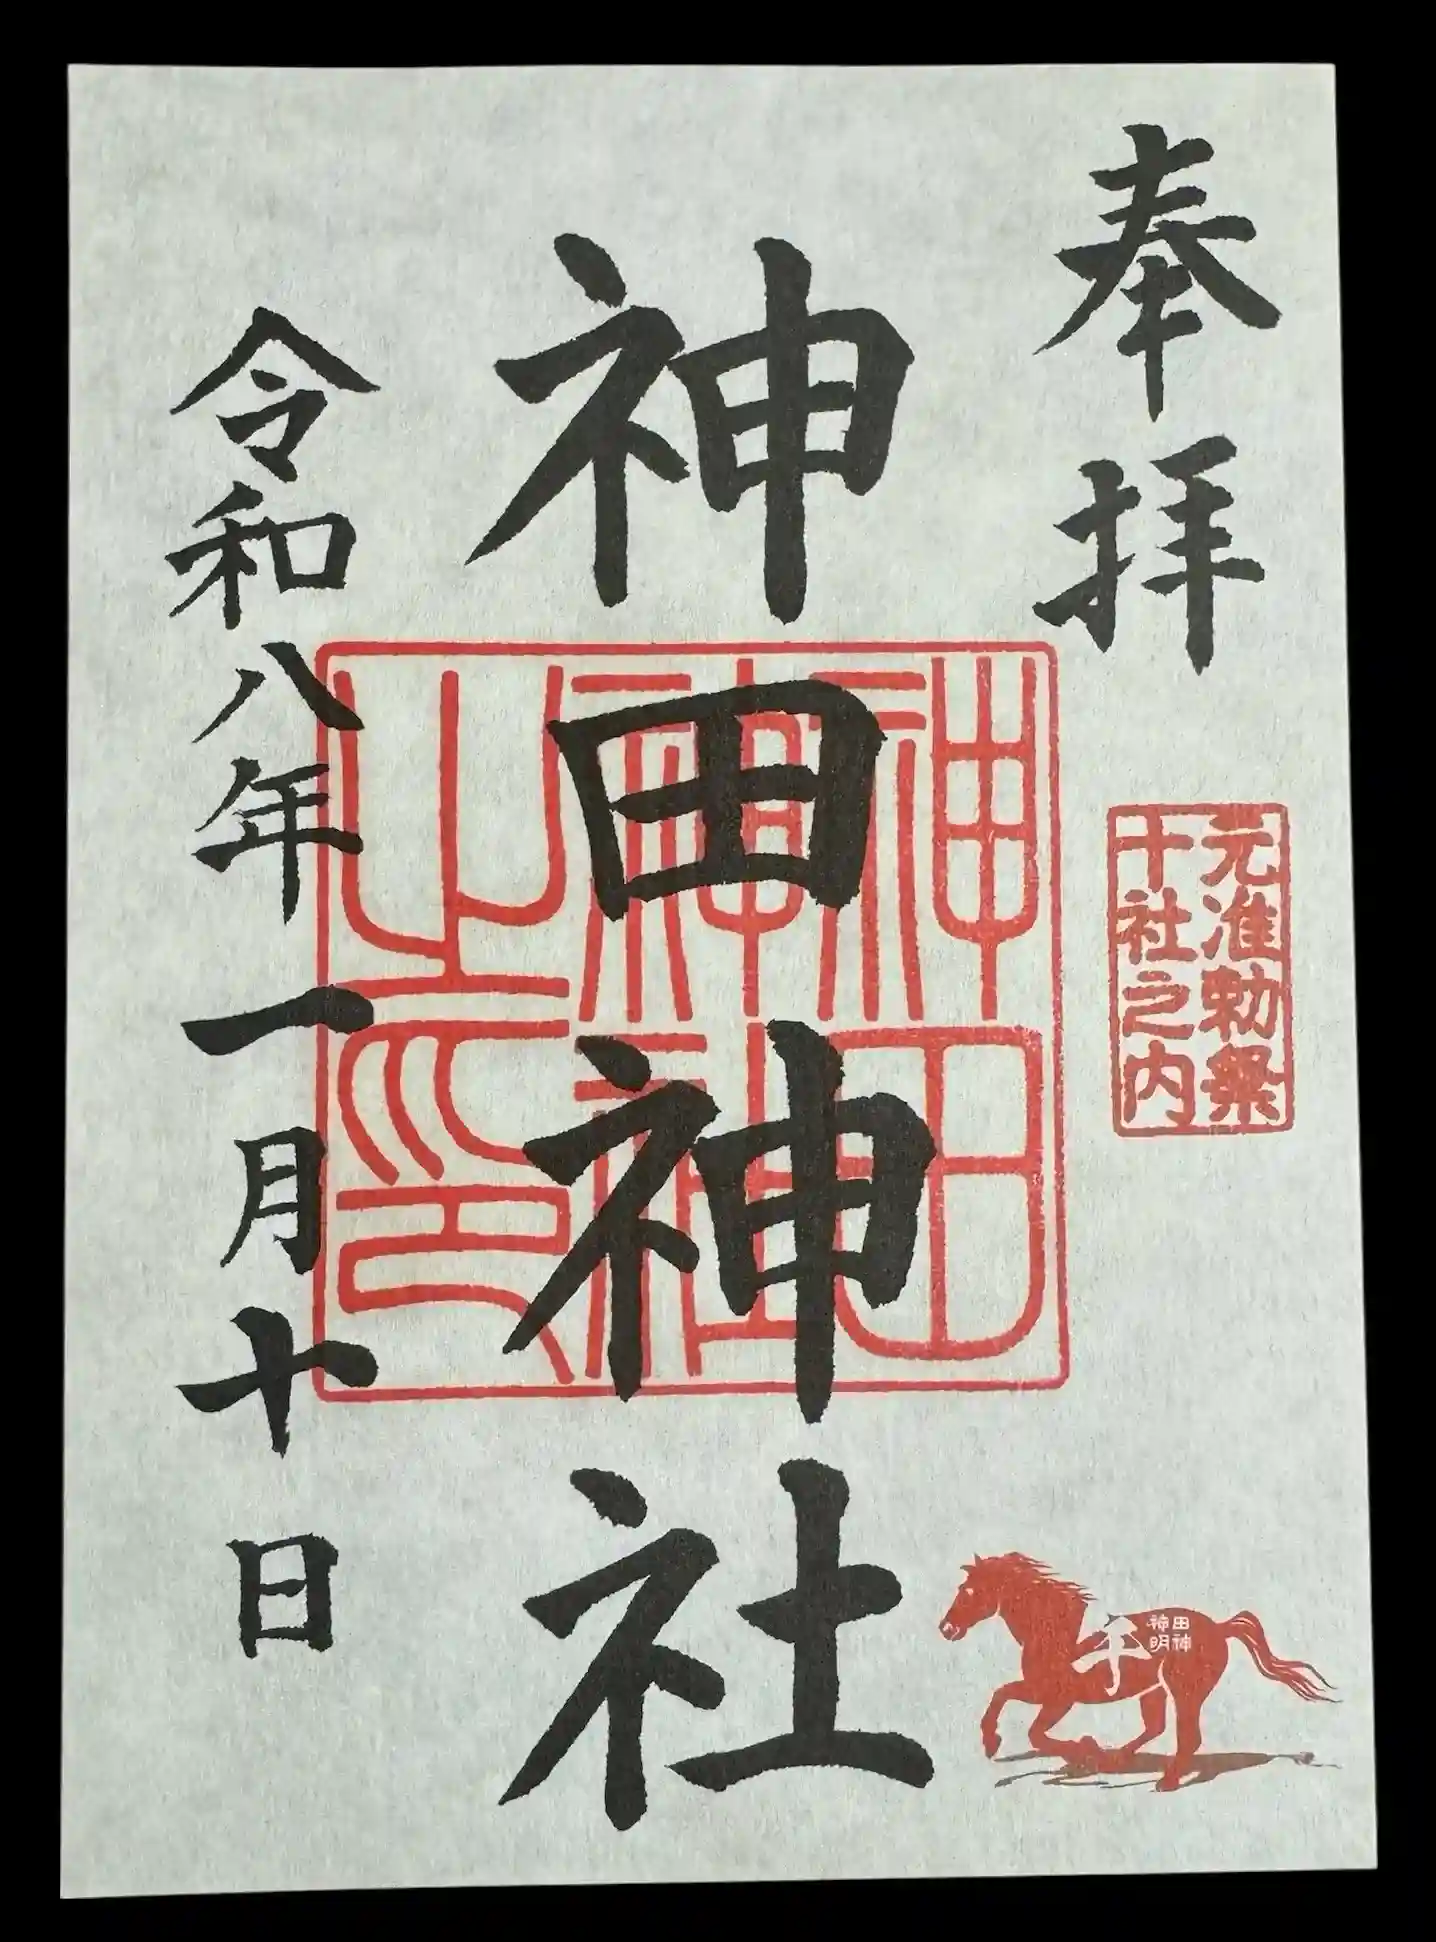 奉拝
元准勅祭
十社之内
神田神社
神田
神社
之印
令和八年一月十日
田神
神明